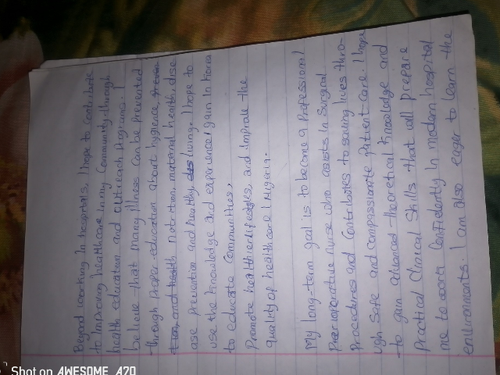 Beyond working in hospitals, I hope to contribute
to improving healthcare in my community through
health education and outreach programs. I
believe that many illness can be prevented
through proper education about hygiene
nutrition, maternal health, dise
ase prevention and healthy living. I hope to
use the knowledge and experience I gain in Korea
to educate communities,
Promote healthier lifestyles, and improve the
quality of healthcare in Nigeria.
My long-term goal is to become a Professional
Perioperative nurse who assists in surgical
Procedures and contributes to saving lives thro-
ugh safe and compassionate patient care. I hope
to gain advanced theoretical knowledge and
Practical Clinical skills that will prepare
me to work confidently in modern hospital
environments. I am also eager to learn the
Shot on AWESOME A70